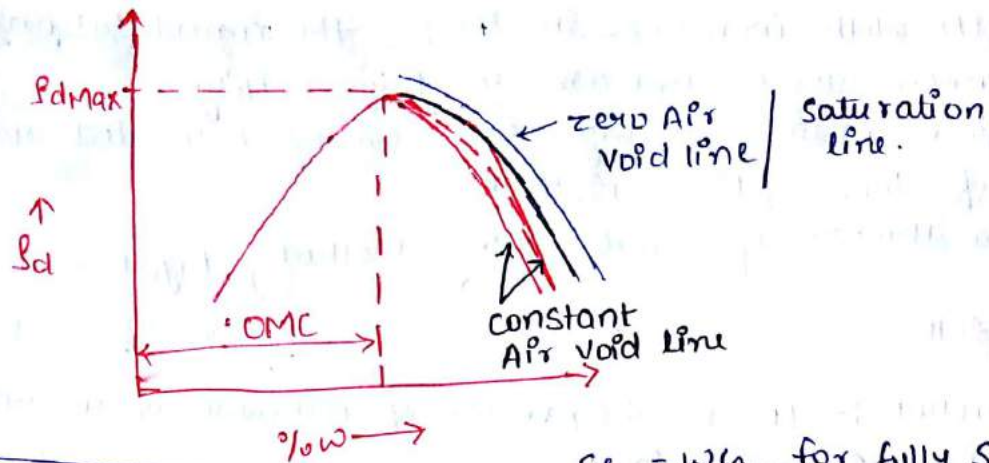 ρdMax
zero Air
void line
Saturation
line.
↑
ρd
OMC
constant
Air void line
%w →
= wG for fully S